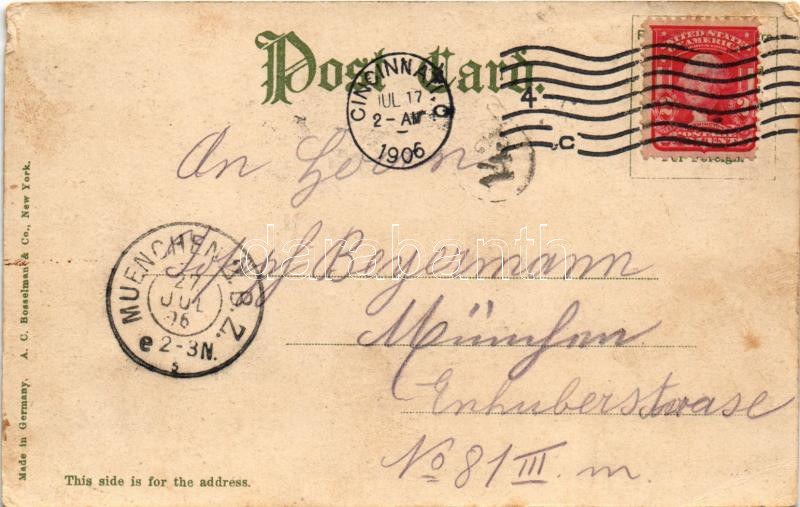 Post Card.
CINCINNATI, O.
JUL 17
2-AM
1906
4
C
UNITED STATES OF AMERICA
POSTAGE
An Herrn
Josef Beyermann
München
Enhuberstrase
No 81 III. m.
MUENCHEN 2. B.Z.
JUL
06
e 2-3N.
darabanth
Made in Germany. A. C. Bosselman & Co., New York.
This side is for the address.